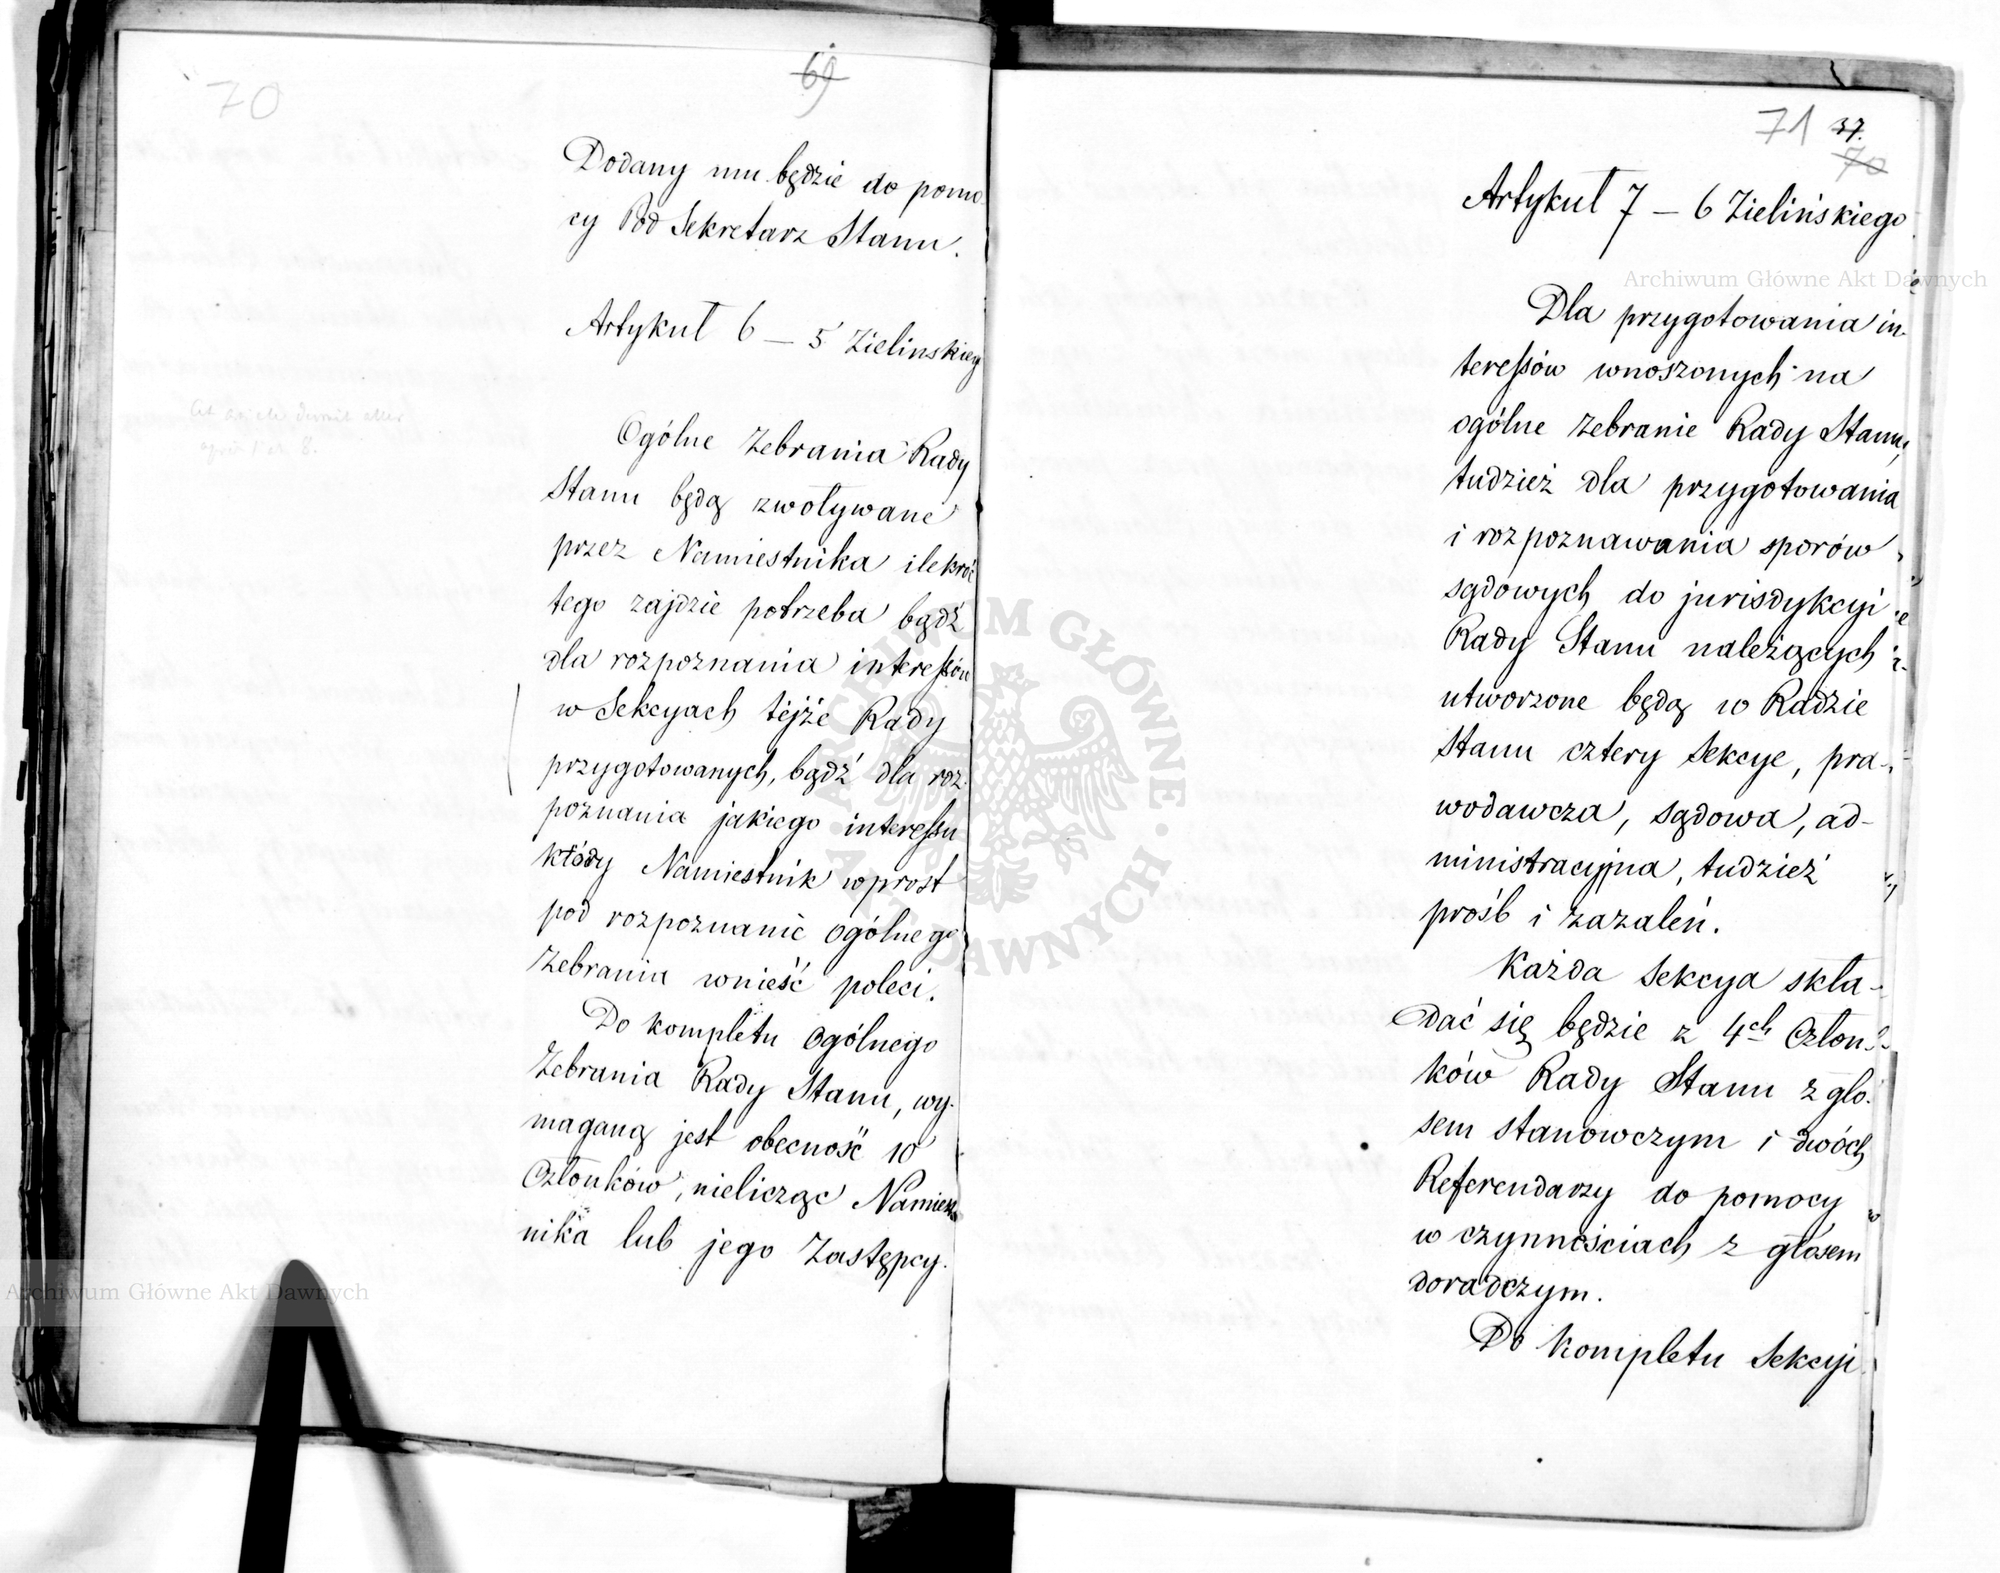 70
69
Dodany mu będzie do pomo-
cy Pod Sekretarz Stanu.
Artykuł 6 – 5 Zielinskieg
Ogólne Zebrania Rady
Stanu będą zwoływane
przez Namiestnika ilekroć
tego zajdzie potrzeba bądź
dla rozpoznania interessów
w Sekcyach tejże Rady
przygotowanych, bądź dla roz-
poznania jakiego interessu
któdy Namiestnik wprost
pod rozpoznanie ogólnego
Zebrania wnieść poleci.
Do kompletu Ogólnego
Zebrania Rady Stanu, wy-
maganą jest obecność 10
Członków, nielicząc Namiest
nika lub jego Zastępcy.
71 37.
70
Artykuł 7 – 6 Zielińskiego
Dla przygotowania in-
teressów wnoszonych na
ogólne zebranie Rady Stanu,
tudzież dla przygotowania
i rozpoznawania sporów
sądowych do jurisdykcyi
Rady Stanu należących
utworzone będą w Radzie
Stanu cztery Sekcye, pra-
wodawcza, sądowa, ad-
ministracyjna, tudzież
prośb i zażaleń.
Każda Sekcya skła-
dać się będzie z 4ch Człon-
ków Rady Stanu z gło-
sem stanowczym i dwóch
Referendarzy do pomocy
w czynnościach z głosem
doradczym.
Do kompletu Sekcyi
Archiwum Główne Akt Dawnych
Archiwum Główne Akt Dawnych
ARCHIWUM GŁÓWNE · AKT DAWNYCH ·